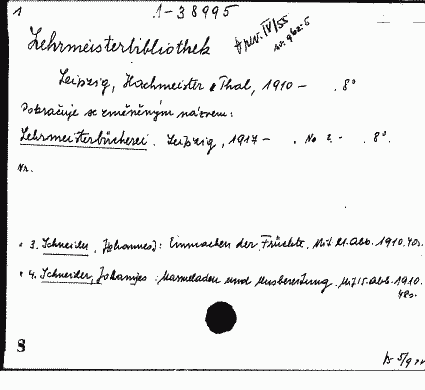 1 1-38995
Lehrmeisterbibliothek
Leipzig, Hachmeister & Thal, 1910 - . 8°
Pokračuje se změněným názvem:
Lehrmeisterbücherei. Leipzig, 1917 - . No 2. - . 8°.
Nr.
3. Schneider, Johannes: Einmachen der Früchte. Mit 21. Abb. 1910. 40s.
4. Schneider, Johannes: Marmeladen und Musbereitung. Mit 15. Abb. 1910.
48s.
8